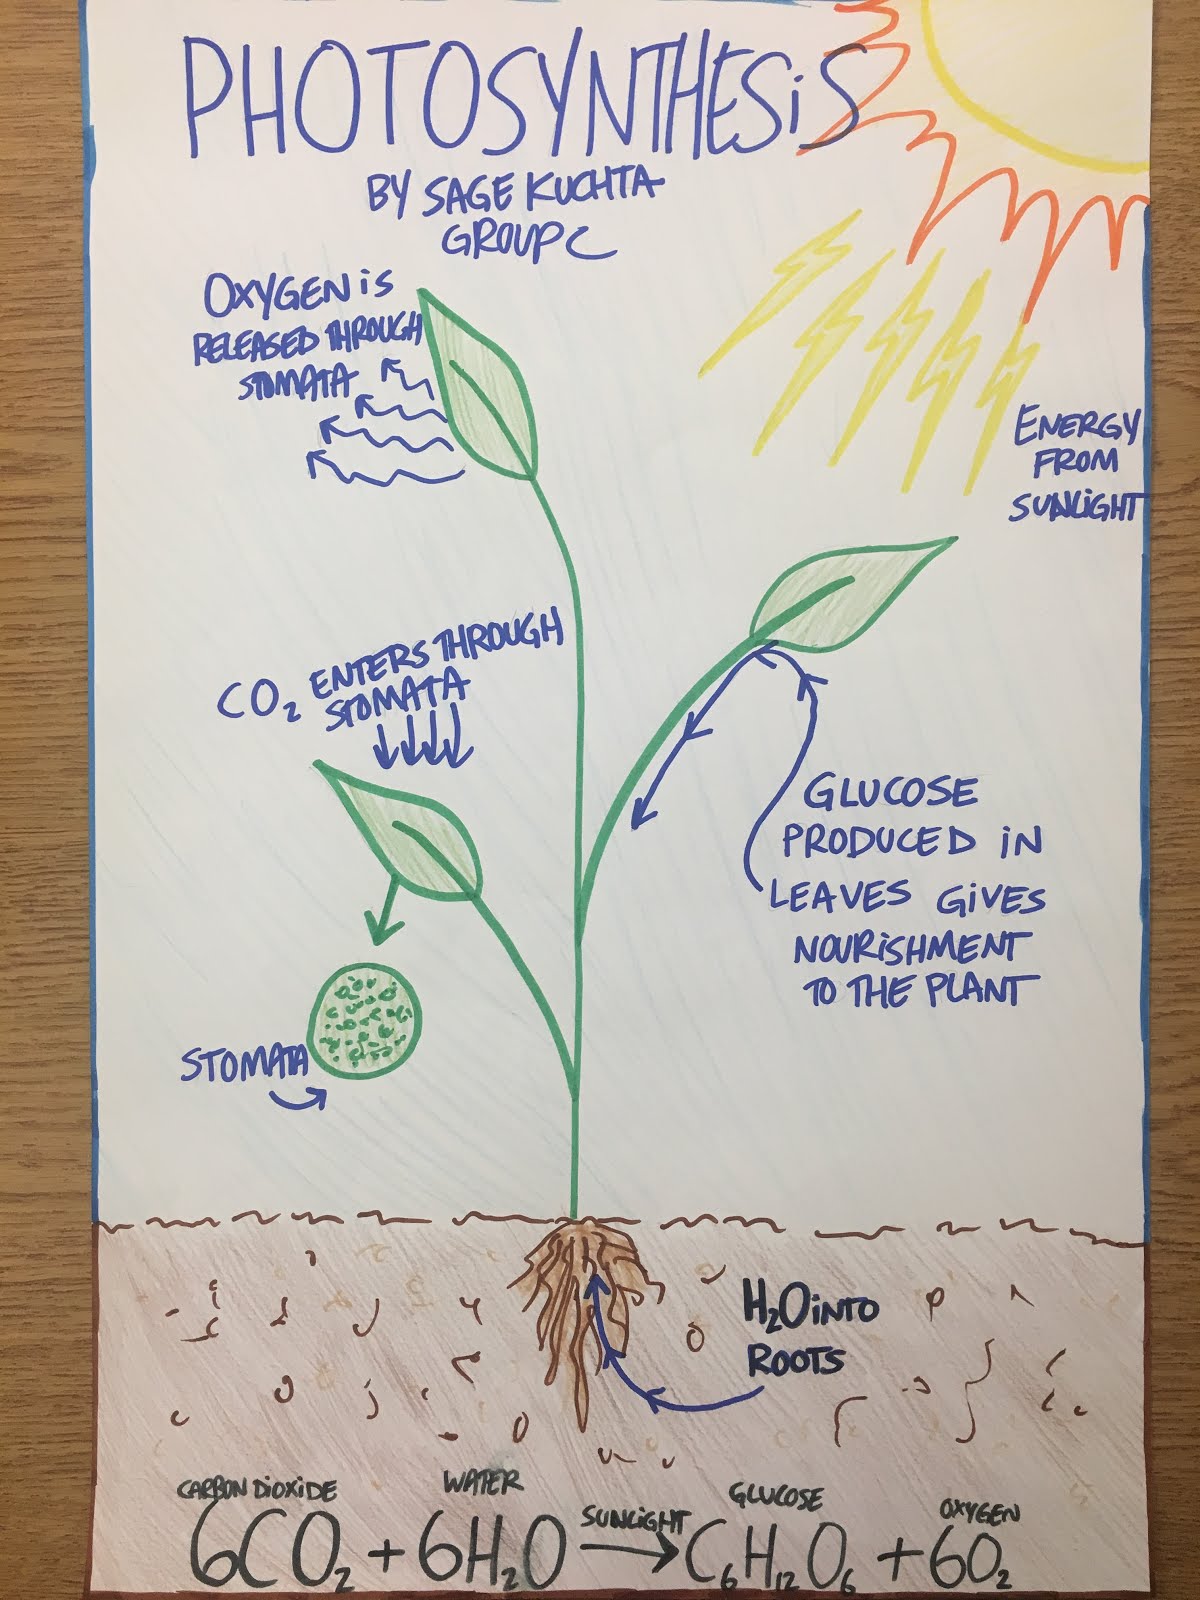 PHOTOSYNTHESiS
BY SAGE KUCHTA
GROUP C
OXYGEN iS
RELEASED THROUGH
STOMATA
ENERGY
FROM
SUNLiGHT
CO₂ ENTERS THROUGH
STOMATA
GLUCOSE
PRODUCED iN
LEAVES GiVES
NOURiSHMENT
TO THE PLANT
STOMATA
H₂O iNTO
ROOTS
CARBON DiOXiDE WATER GLUCOSE OXYGEN
6CO₂ + 6H₂O SUNLiGHT → C₆H₁₂O₆ + 6O₂